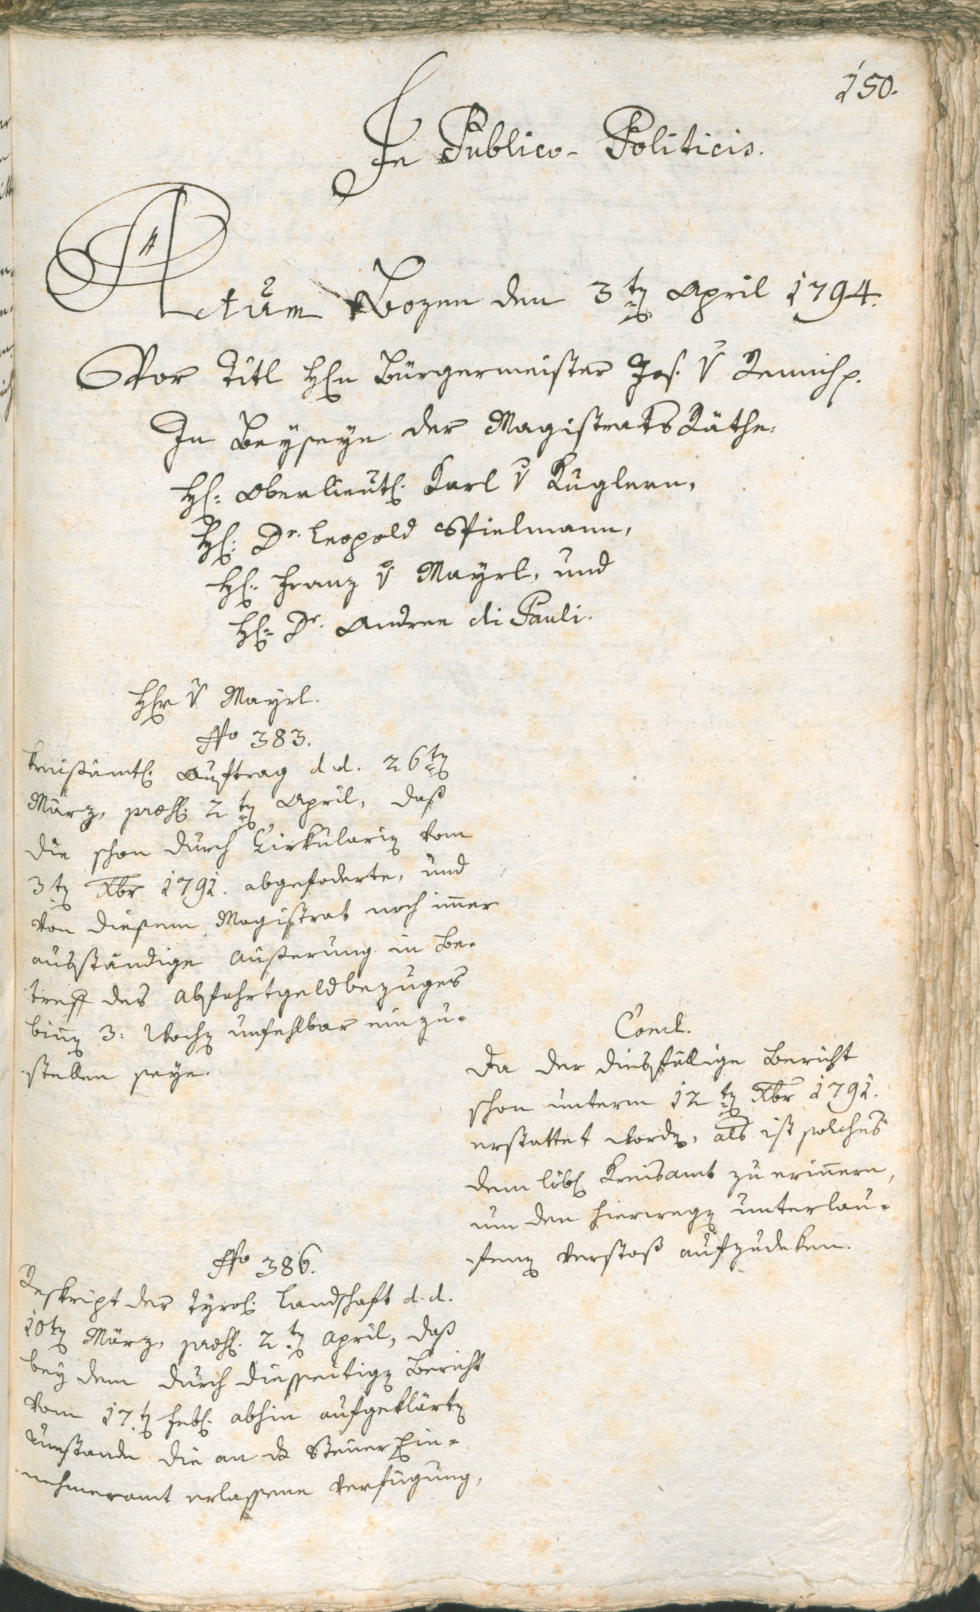 150.
In Publico- Politicis.
Actum Bozen den 3ten April 1794.
Vor Titl Hhn Bürgermeister Jos: v
In Beyseyn der Magistrats Räthe.
H: Oberlieut: Karl v Kuglern,
H: Dr. Leopold Spielmann,
H: Franz v Mayrl, und
H: Dr. Andree di Pauli.
Hhr v Mayrl.
No 383.
kreisämtl: Auftrag d.d. 26ten
März, praes: 2ten April, daß
die schon durch Cirkularin vom
3ten Xbr 1791. abgeforderte, und
von diesem Magistrat noch immer
ausständige Äußerung in Be-
treff des Abfahrtgeldbezuges
binnen 3: Wochen unfehlbar einzu-
stellen seye.
Concl.
Da der diesfällige Bericht
schon unterm 12ten Xbr 1791.
erstattet worden, als ist solches
dem löbl: Kreisamt zu erinnern,
um den hierwegen unterlau-
fenen Verstoß aufzudeken.
No 386.
Reskript der Tyrol: Landschaft d.d.
10ten März, praes: 2ten April, daß
bey dem durch diesseitigen Bericht
vom 17ten Feb: abhin aufgeklärten
Umstande die an das Steuer Ein-
nehmeramt erlassene Verfügung,